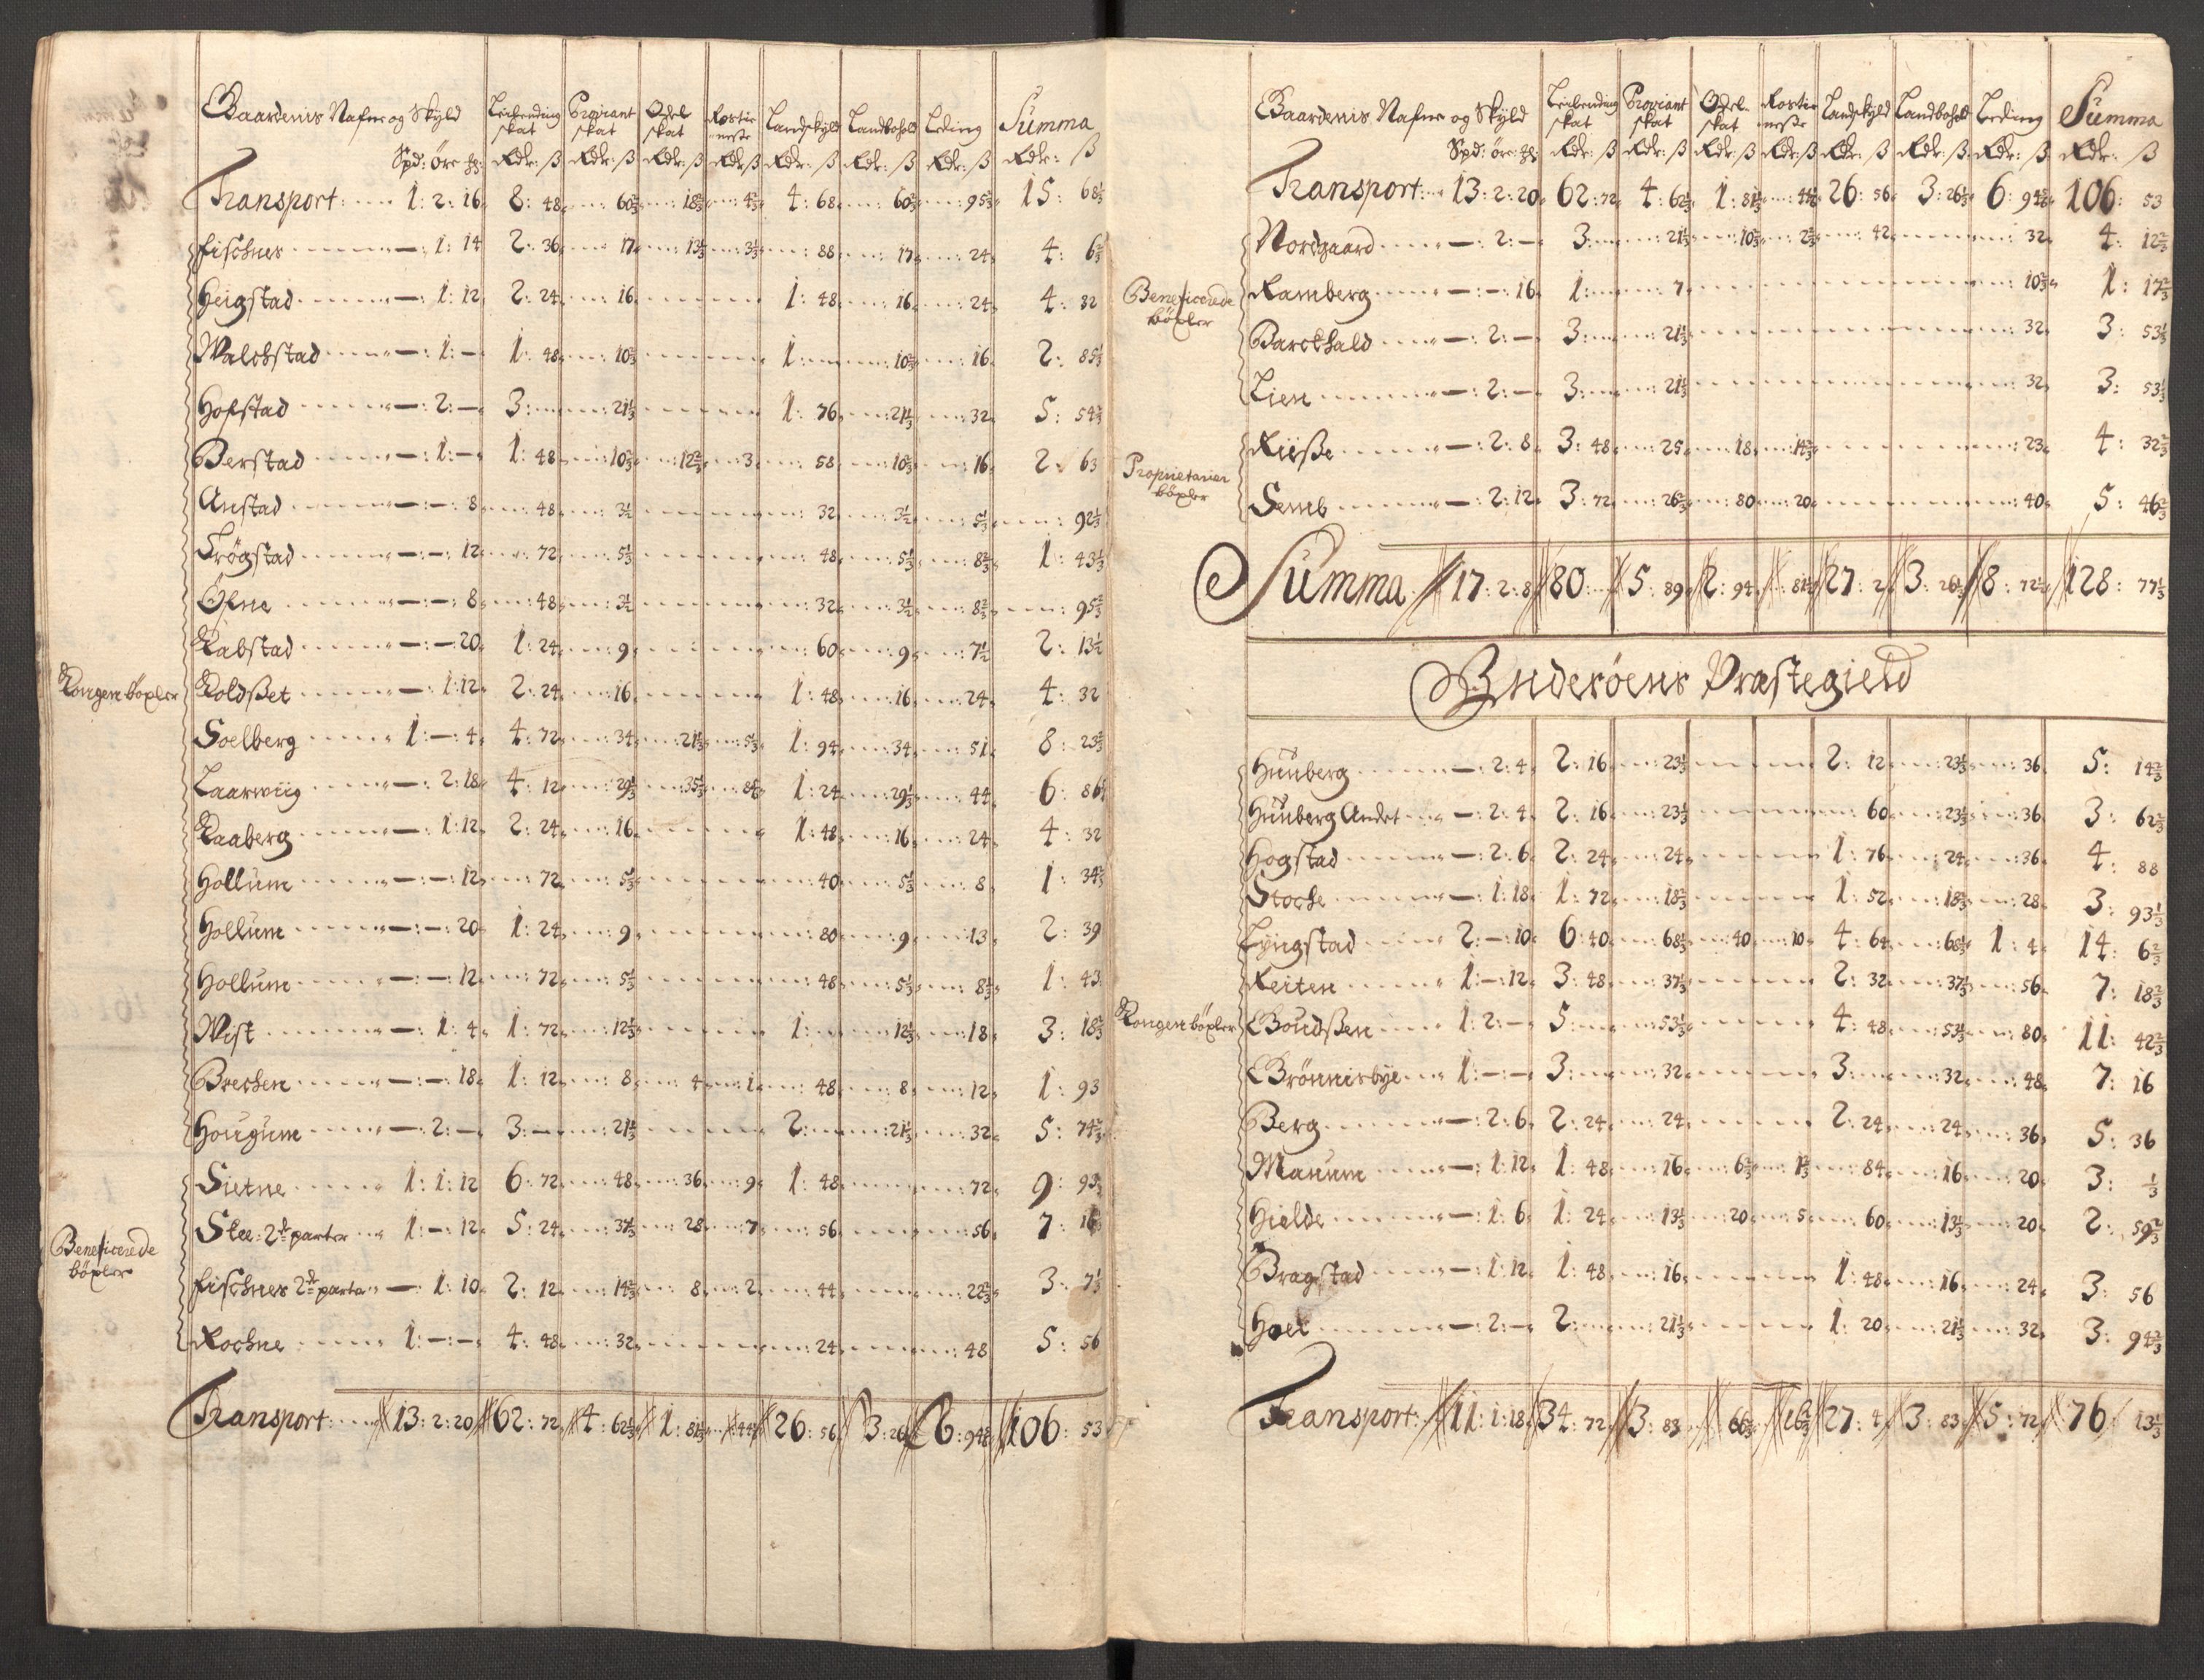 Gaardenis Nafne og Skÿld | Leilending skat | Proviant skat | Odel skat | Rostieneste | Landskÿld | Landbohold | Leding | Summa
Spd: öre | Rdr: ß | Rdr: ß | Rdr: ß | Rdr: ß | Rdr: ß | Rdr: ß | Rdr: ß | Rdr: ß
Transport 1: 2: 16 | 8: 48 | 60⅔ | 18⅔ | 4⅔ | 4: 68 | 60⅔ | 95⅔ | 15: 68⅓
Fischnes —: 1: 14 | 2: 36 | 17 | 13⅓ | 3⅓ | 88 | 17 | 24 | 4: 6⅔
Heigstad —: 1: 12 | 2: 24 | 16 | 1: 48 | 16 | 24 | 4: 32
Walchstad —: 1: — | 1: 48 | 10⅔ | 1: | 10⅔ | 16 | 2: 85⅓
Hofstad —: 2: — | 3: | 21⅓ | 1: 76 | 21⅓ | 32 | 5: 54⅔
Berstad —: 1: — | 1: 48 | 10⅔ | 12⅔ | 3 | 58 | 10⅔ | 16 | 2: 63
Anstad —: —: 8 | 48 | 3½ | 32 | 3½ | 5⅓ | 92⅓
Trögstad —: —: 12 | 72 | 5⅓ | 48 | 5⅓ | 8⅔ | 1: 43⅓
Öfne —: —: 8 | 48 | 3½ | 32 | 3½ | 8⅔ | 95⅔
Rabstad —: —: 20 | 1: 24 | 9 | 60 | 9 | 7½ | 2: 13½
Kongen böxler
Koldßet —: 1: 12 | 2: 24 | 16 | 1: 48 | 16 | 24 | 4: 32
Soelberg 1: —: 4 | 4: 72 | 34 | 21⅓ | 5⅓ | 1: 94 | 34 | 51 | 8: 23⅔
Laarwiig —: 2: 18 | 4: 12 | 29⅓ | 35⅓ | 8⅔ | 1: 24 | 29⅓ | 44 | 6: 86
Raaberg —: 1: 12 | 2: 24 | 16 | 1: 48 | 16 | 24 | 4: 32
Hollum —: —: 12 | 72 | 5⅓ | 40 | 5⅓ | 8 | 1: 34⅔
Hollum —: —: 20 | 1: 24 | 9 | 80 | 9 | 13 | 2: 39
Hollum —: —: 12 | 72 | 5⅓ | 48 | 5⅓ | 8⅓ | 1: 43
Wist —: 1: 4 | 1: 72 | 12⅓ | 1: | 12⅓ | 18 | 3: 18⅔
Brechen —: —: 18 | 1: 12 | 8 | 4 | 1 | 48 | 8 | 12 | 1: 93
Hougum —: 2: — | 3: — | 21⅓ | 2: | 21⅓ | 32 | 5: 74⅔
Sietne 1: 1: 12 | 6: 72 | 48 | 36 | 9 | 1: 48 | 72 | 9: 93
Beneficerede böxler
Stee 2de parter 1: —: 12 | 5: 24 | 37⅓ | 28 | 7 | 56 | 56 | 7: 16
Fischnes 2de parter —: 1: 10 | 2: 12 | 14⅔ | 8 | 2 | 44 | 22⅔ | 3: 7⅓
Rochne 1: —: — | 4: 48 | 32 | 24 | 48 | 5: 56
Transport 13: 2: 20 | 62: 72 | 4: 62⅓ | 1: 81⅓ | 44 | 26: 56 | 3: 26 | 6: 94⅔ | 106: 53
Gaardenis Nafne og Skÿld | Leilending skat | Proviant skat | Odel skat | Rostieneste | Landskÿld | Landbohold | Leding | Summa
Spd: öre | Rdr: ß | Rdr: ß | Rdr: ß | Rdr: ß | Rdr: ß | Rdr: ß | Rdr: ß | Rdr: ß
Transport 13: 2: 20 | 62: 72 | 4: 62⅓ | 1: 81⅓ | 44 | 26: 56 | 3: 26⅓ | 6: 94⅔ | 106: 53
Nordgaard —: 2: — | 3: | 21⅓ | 10⅔ | 2⅔ | 42 | 32 | 4: 12⅔
Beneficerede böxler
Ramberg —: —: 16 | 1: | 7 | 10⅔ | 1: 17⅔
Barckhald —: 2: — | 3: | 21⅓ | 32 | 3: 53⅓
Lien —: 2: — | 3: | 21⅓ | 32 | 3: 53⅓
Proprietarier böxler
Riiße —: 2: 8 | 3: 48 | 25 | 18 | 14⅔ | 23 | 4: 32⅔
Semb —: 2: 12 | 3: 72 | 26⅔ | 80 | 20 | 40 | 5: 46⅔
Summa 17: 2: 8 | 80 | 5: 89 | 2: 94 | 81⅓ | 27: 2 | 3: 26⅓ | 8: 72 | 128: 77⅓
Ÿnderöens Præstegield
Huuberg —: 2: 4 | 2: 16 | 23⅓ | 2: 12 | 23⅓ | 36 | 5: 14⅔
Huuberg Andet —: 2: 4 | 2: 16 | 23⅓ | 60 | 23⅓ | 36 | 3: 62⅔
Hogstad —: 2: 6 | 2: 24 | 24 | 1: 76 | 24 | 36 | 4: 88
Storhe —: 1: 18 | 1: 72 | 18⅔ | 1: 52 | 18⅔ | 28 | 3: 93⅓
Lÿngstad 2: —: 10 | 6: 40 | 68⅓ | 40 | 10 | 4: 64 | 68⅓ | 1: 4 | 14: 6⅔
Reiten 1: —: 12 | 3: 48 | 37⅓ | 2: 32 | 37⅓ | 56 | 7: 18⅔
Kongen böxler
Goudßen 1: 2: — | 5: | 53⅓ | 4: 48 | 53⅓ | 80 | 11: 42⅔
Grönnisbÿe 1: —: — | 3: | 32 | 3: | 32 | 48 | 7: 16
Berg —: 2: 6 | 2: 24 | 24 | 2: 24 | 24 | 36 | 5: 36
Manum —: 1: 12 | 1: 48 | 16 | 6⅔ | 1⅔ | 84 | 16 | 20 | 3: ⅓
Hielde —: 1: 6 | 1: 24 | 13⅓ | 20 | 5 | 60 | 13⅓ | 20 | 2: 59⅔
Bragstad —: 1: 12 | 1: 48 | 16 | 1: 48 | 16 | 24 | 3: 56
Hoel —: 2: — | 2: | 21⅓ | 1: 20 | 21⅓ | 32 | 3: 94⅔
Transport 11: 1: 18 | 34: 72 | 3: 83 | 66⅔ | 16⅔ | 27: 4 | 3: 83 | 5: 72 | 76: 13⅓